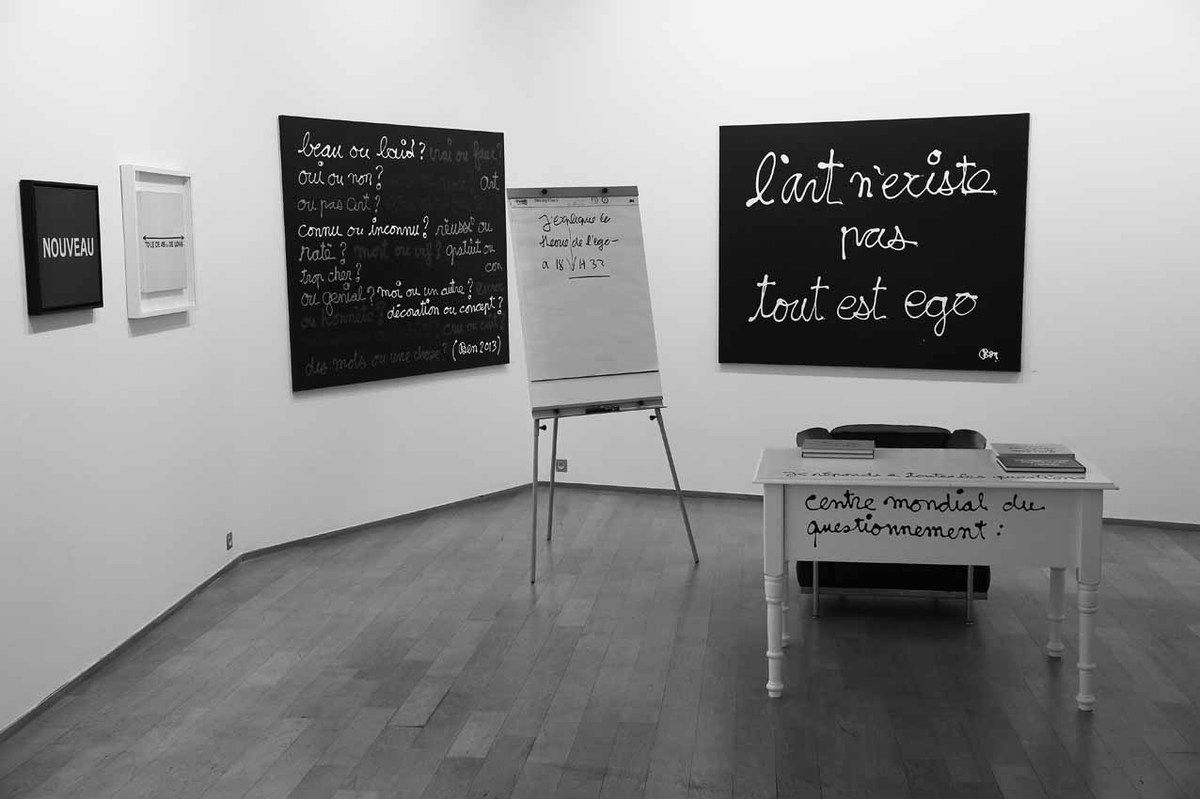 NOUVEAU
TOLE DE 45 cm DE LONG
beau ou laid? vrai ou faux?
oui ou non?
Art
ou pas art?
connu ou inconnu? réussi ou
raté? mort ou vif? gratuit ou
trop cher?
con
ou génial? moi ou un autre?
décoration ou concept?
des mots ou une chose? (Ben 2013)
J'explique la
théorie de l'ego
a 18 H 32
l'art n'existe
pas
tout est ego
Ben
je réponds à toutes les questions
centre mondial du
questionnement :